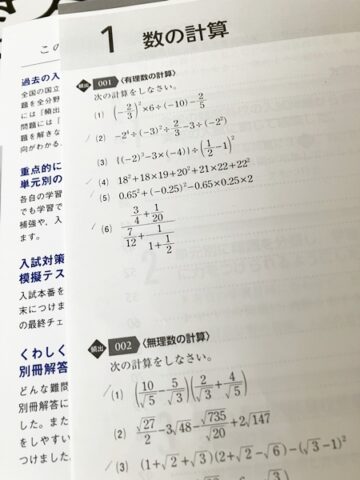 この
過去の入
全国の国立
題を全分野
には「頻出
問題には「
題を解きな
向がわかる
重点的に
単元別の
各自の学習
でも学習で
補強や、入
ます。
入試対策
模擬テス
入試本番を
末につけま
の最終チェ
くわしく
別冊解答
どんな難問
別冊解答に
した。また
をしやすい
つけました
1 数の計算
頻出 001 〈有理数の計算〉
次の計算をしなさい。
(1) (-2/3)²×6÷(-10)-2/5
(2) -2⁴÷(-3)²÷2/3-3÷(-2²)
(3) {(-2)³-3×(-4)}÷(1/2-1)²
(4) 18²+18×19+20²+21×22+22²
(5) 0.65²+(-0.25)²-0.65×0.25×2
(6) (3/4+1/20)/(7/12+1/(1+1/2))
頻出 002 〈無理数の計算〉
次の計算をしなさい。
(1) (10/√5-5/√3)(2/√3+4/√5)
(2) √27/2-3√48-√735/√20+2√147
(3) (1+√2+√3)(2+√2-√6)-(√3-1)²